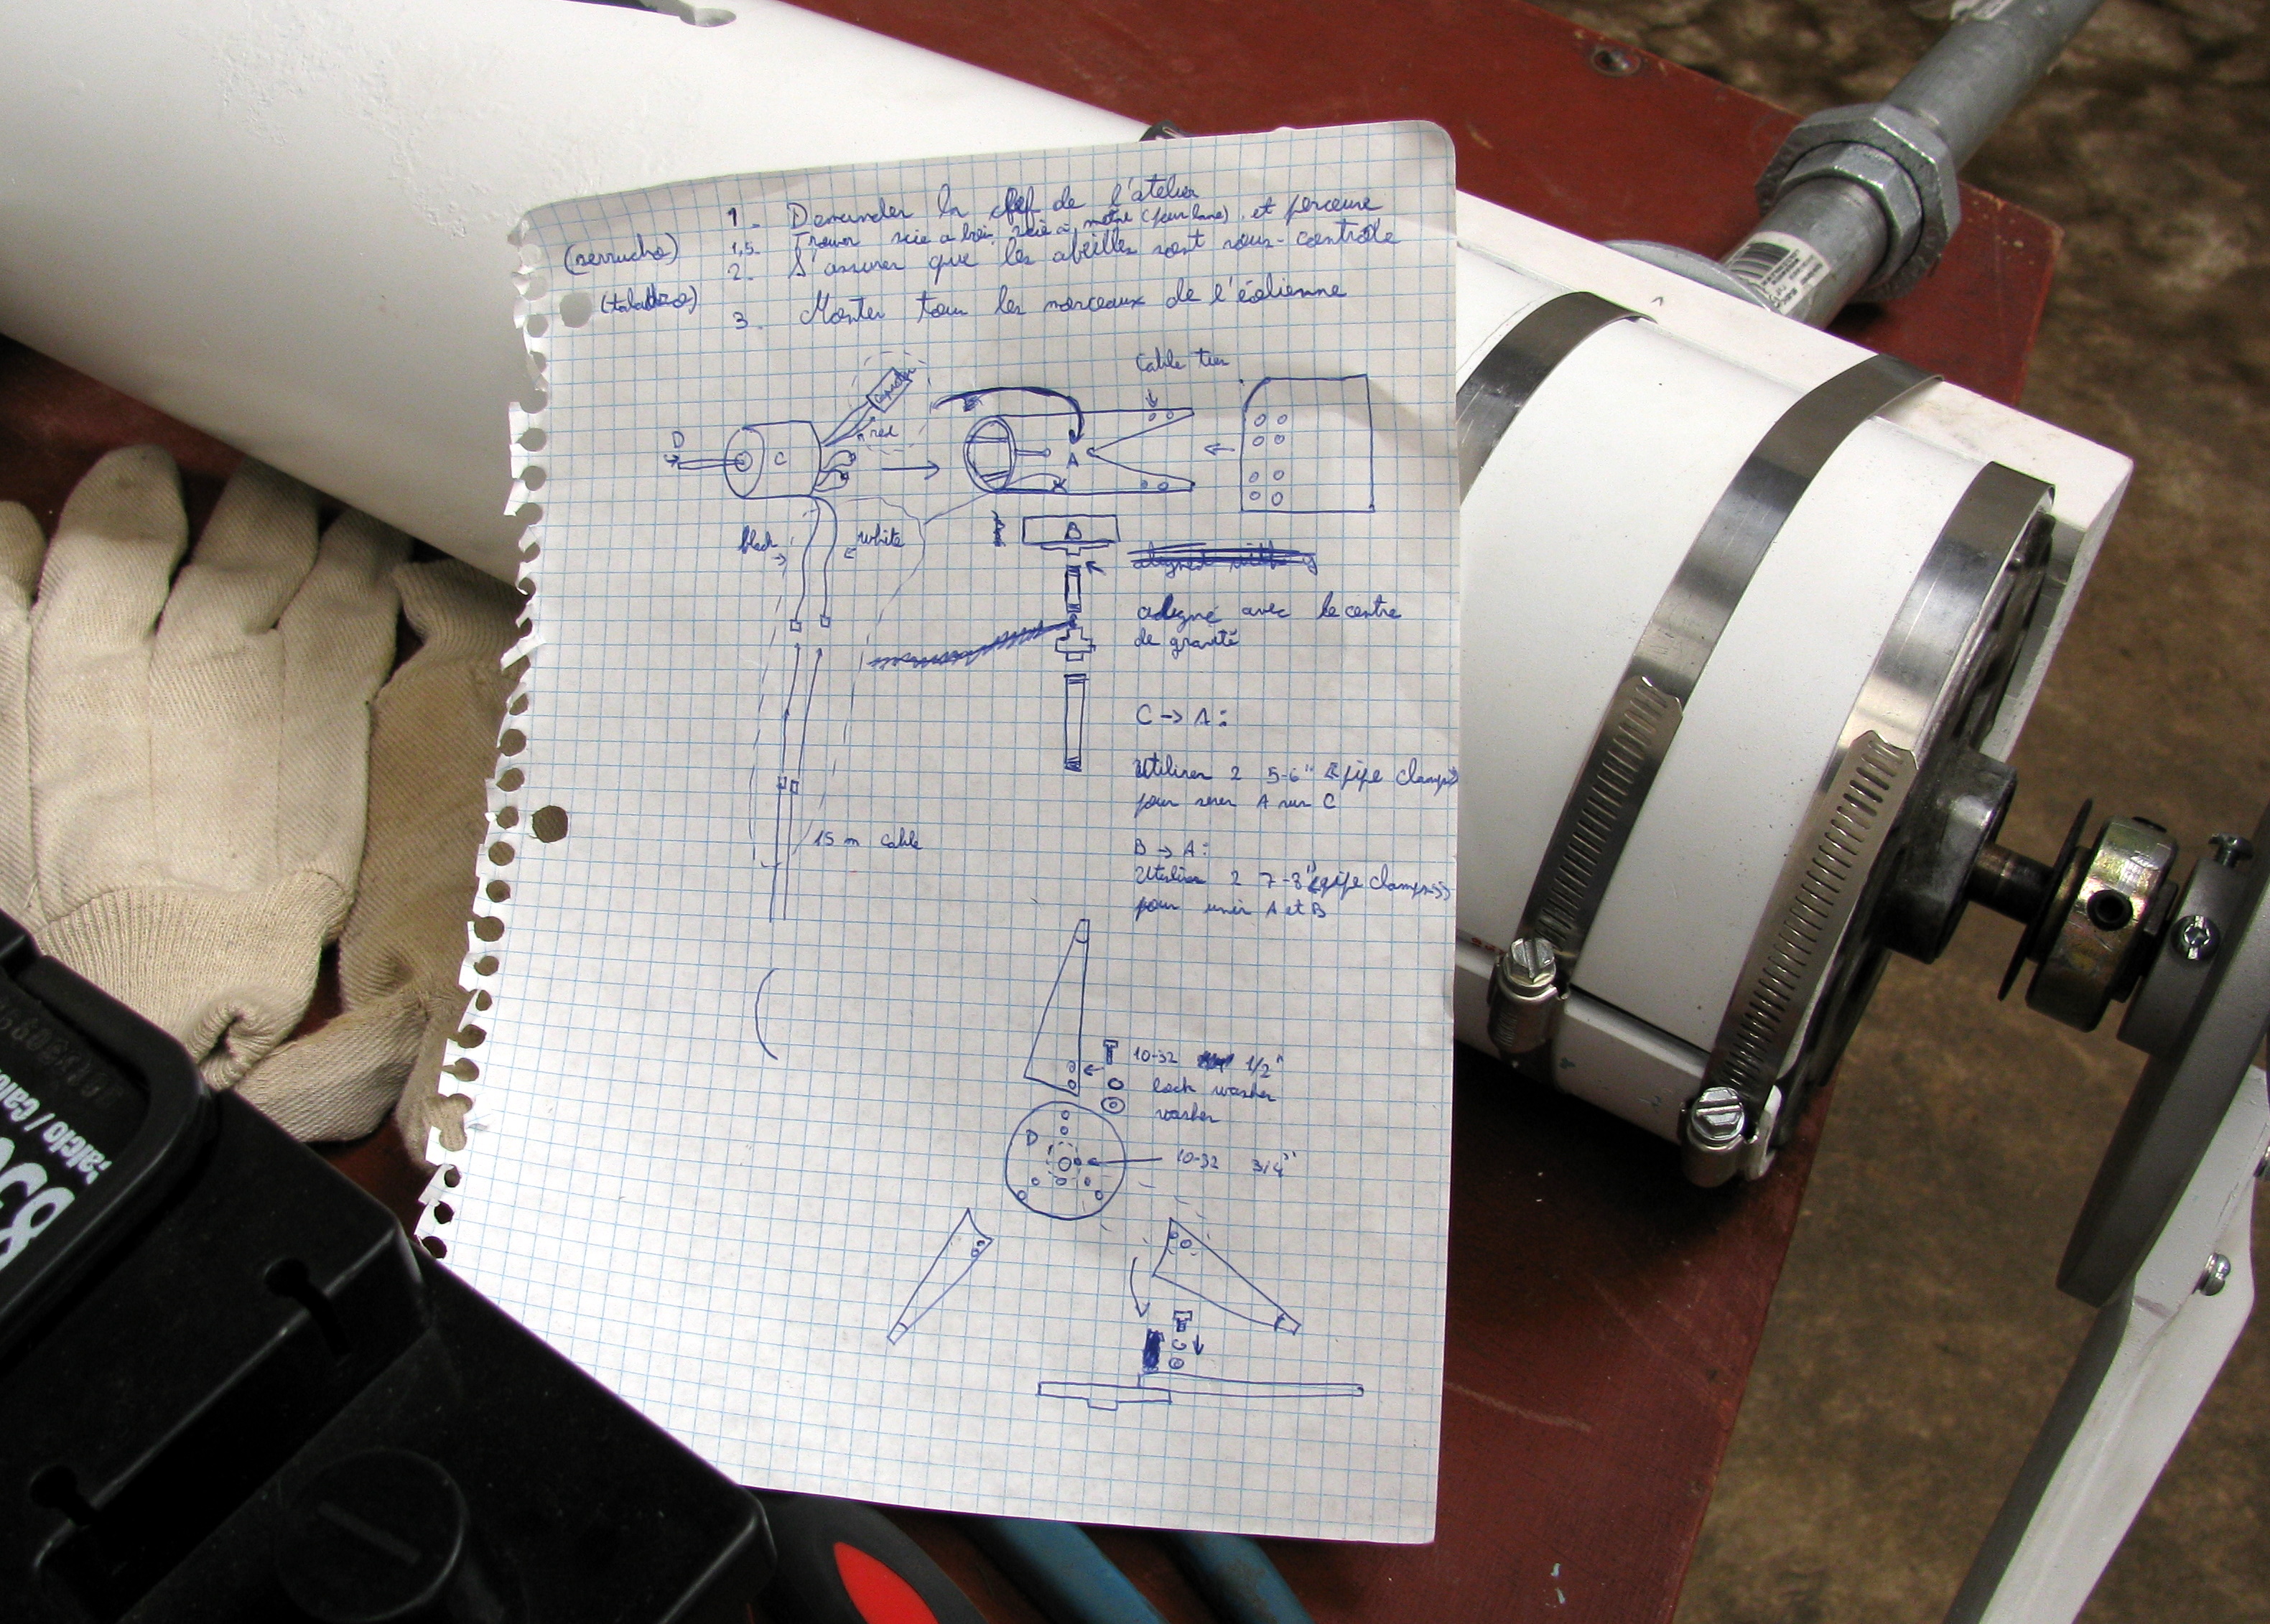 1- Demander la clef de l'atelier
1,5- Trouver scie a bois, scie à métal (pour lame), et perceuse
(serrucho)
2- S'assurer que les abeilles sont sous-contrôle
(taladro)
3- Monter tous les morceaux de l'éolienne
Cable ties
capacitor
red
D
C
A
B
black
white
aligned with
aligné avec le centre
de gravité
C → A:
Utiliser 2 5-6" «pipe clamps»
pour serrer A sur C
15 m cable
B → A:
Utiliser 2 7-8" «pipe clamps»
pour unir A et B
10-32 1/2"
lock washer
washer
D
10-32 3/4"